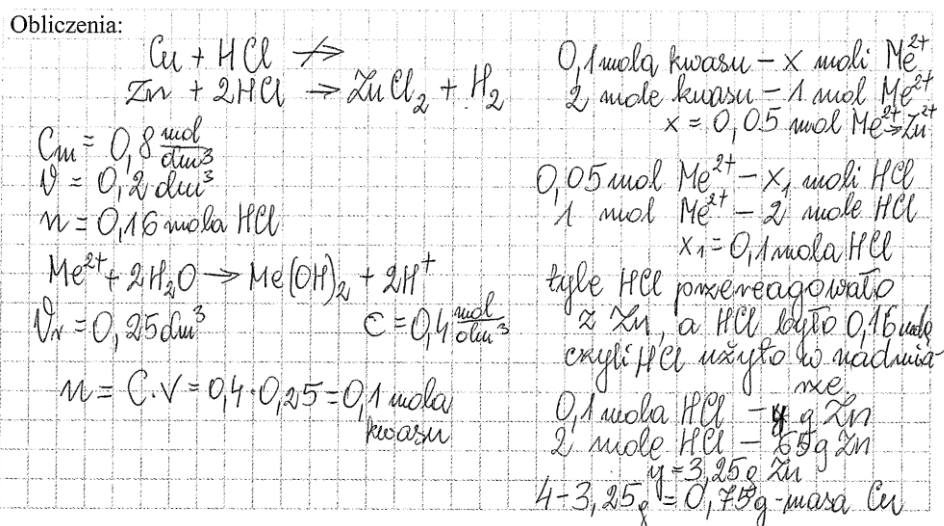 Obliczenia:
Cu + HCl ↛
Zn + 2HCl → ZnCl₂ + H₂
Cm = 0,8 mol/dm³
V = 0,2 dm³
n = 0,16 mola HCl
Me²⁺ + 2H₂O → Me(OH)₂ + 2H⁺
Vr = 0,25 dm³ c = 0,4 mol/dm³
n = C·V = 0,4·0,25 = 0,1 mola
kwasu
0,1 mola kwasu – x moli Me²⁺
2 mole kwasu – 1 mol Me²⁺
x = 0,05 mol Me²⁺ → Zn²⁺
0,05 mol Me²⁺ – x₁ moli HCl
1 mol Me²⁺ – 2 mole HCl
x₁ = 0,1 mola HCl
tyle HCl przereagowało
z Zn, a HCl było 0,16 mola
czyli HCl użyto w nadmia-
rze
0,1 mola HCl – y g Zn
2 mole HCl – 65g Zn
y = 3,25g Zn
4 – 3,25g = 0,75g – masa Cu